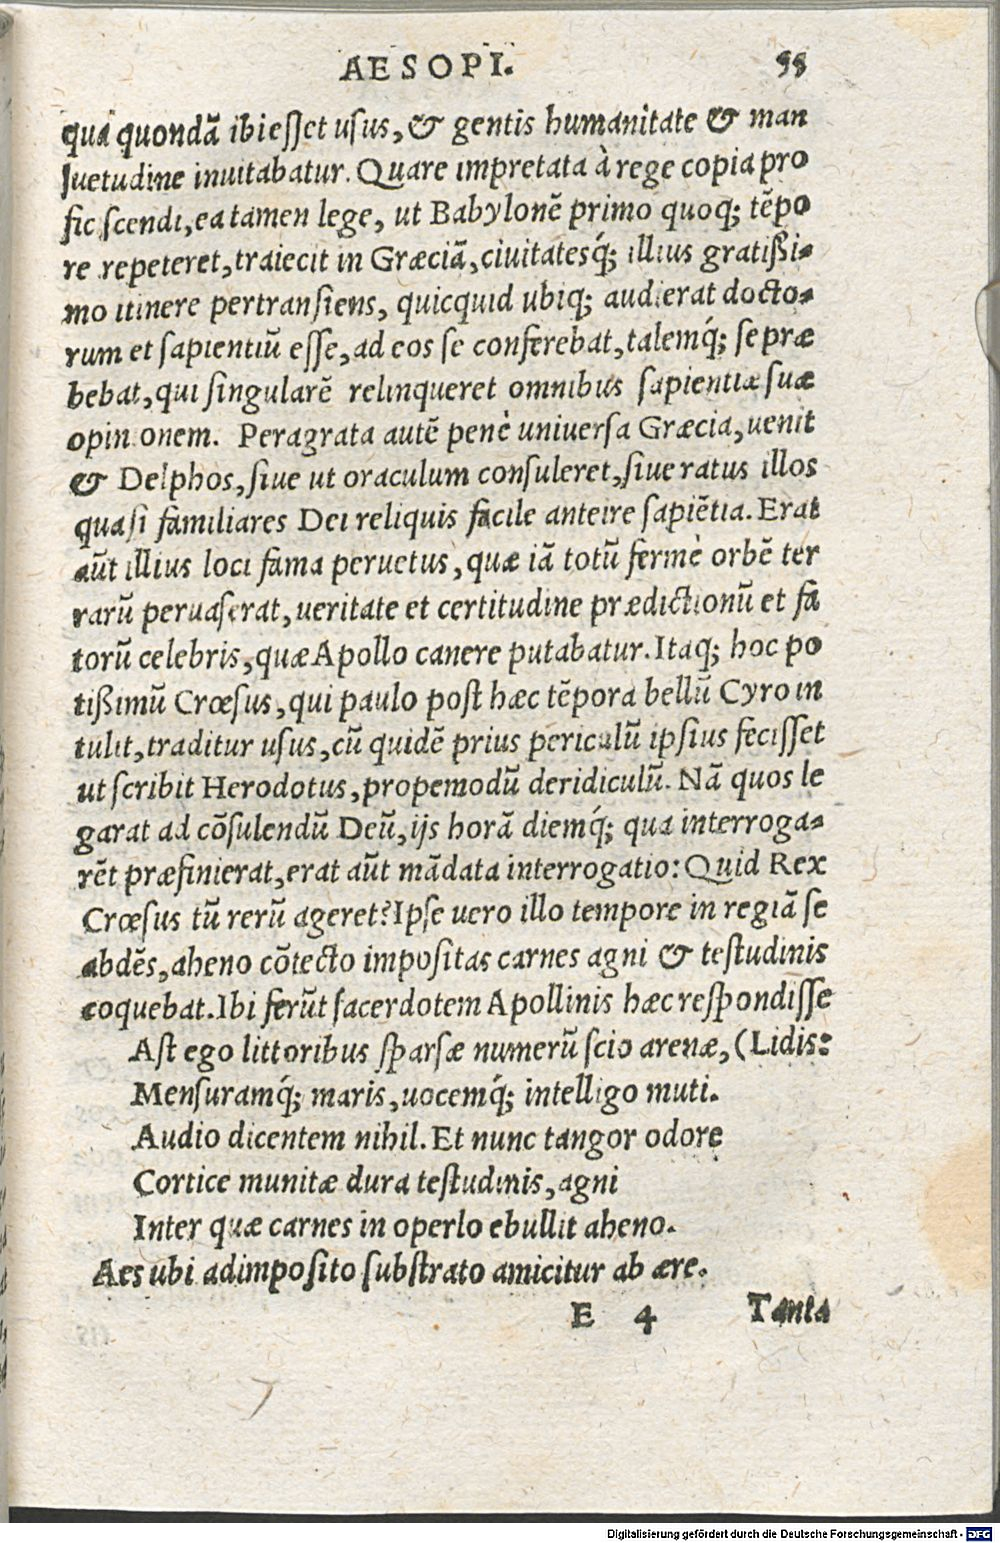 AESOPI. 55
qua quondã ibi esſet uſus, & gentis humanitate & man
ſuetudine inuitabatur. Quare impretata à rege copia pro
fic ſcendi, ea tamen lege, ut Babylonẽ primo quoq; tẽpo
re repeteret, traiecit in Græciã, ciuitatesq́; illius gratißi-
mo itinere pertranſiens, quicquid ubiq; audierat docto-
rum et ſapientiũ eſſe, ad eos ſe conferebat, talemq́; ſe præ
bebat, qui ſingularẽ relinqueret omnibus ſapientiæ ſuæ
opinionem. Peragrata autẽ penè uniuerſa Græcia, uenit
& Delphos, ſiue ut oraculum conſuleret, ſiue ratus illos
quaſi familiares Dei reliquis facile anteire ſapiẽtia. Erat
aũt illius loci fama peruetus, quæ iã totũ fermè orbẽ ter
rarũ peruaſerat, ueritate et certitudine prædictionũ et fa
torũ celebris, quæ Apollo canere putabatur. Itaq; hoc po
tißimũ Crœſus, qui paulo poſt hæc tẽpora bellũ Cyro in
tulit, traditur uſus, cũ quidẽ prius periculũ ipſius feciſſet
ut ſcribit Herodotus, propemodũ deridiculũ. Nã quos le
garat ad cõſulendũ Deũ, ijs horã diemq́; qua interroga-
rẽt præfinierat, erat aũt mãdata interrogatio: Quid Rex
Crœſus tũ rerũ ageret? Ipſe uero illo tempore in regiã ſe
abdẽs, aheno cõtecto impoſitas carnes agni & teſtudinis
coquebat. Ibi ferũt ſacerdotem Apollinis hæc reſpondiſſe
Aſt ego littoribus ſparſæ numerũ ſcio arenæ, (Lidis:
Menſuramq́; maris, uocemq́; intelligo muti.
Audio dicentem nihil. Et nunc tangor odore
Cortice munitæ dura teſtudinis, agni
Inter quæ carnes in operlo ebullit aheno.
Aes ubi adimpoſito ſubſtrato amicitur ab ære.
E 4 Tanta
Digitalisierung gefördert durch die Deutsche Forschungsgemeinschaft - DFG